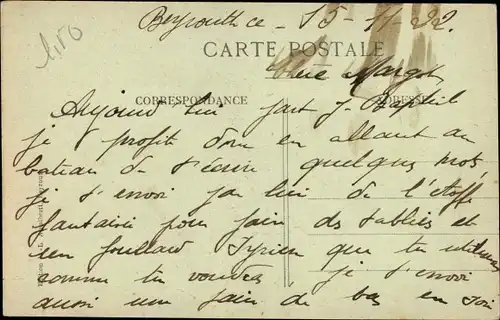 Beyrouth ce 15-11-22.
CARTE POSTALE
Chere Margot,
CORRESPONDANCE ADRESSE
Aujourd'hui part J. Baptil
je profit donc en allant au
bateau de t'écrire quelques mos,
je t'envoi de l'étoffe
fantaisie pour fair ds tabliés et
un foullard Syrien que tu utiliseras
comme tu voudras je t'envoi
aussi une pair de bas en soi